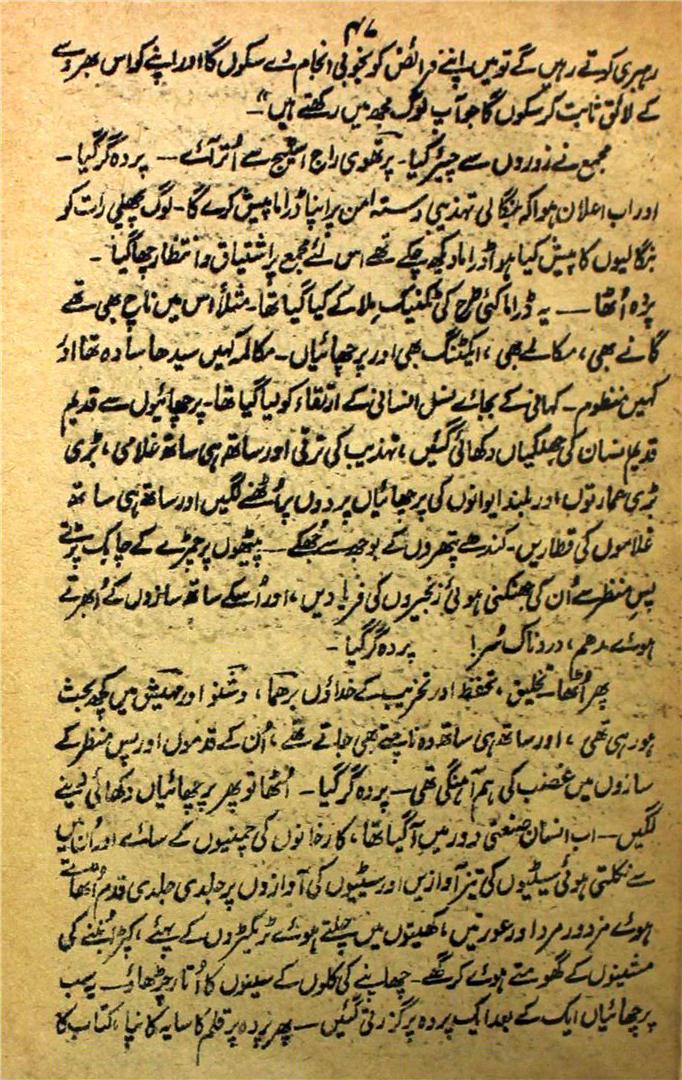 ۴۷
رہبری کرتے رہیں گے تو میں اپنے فرائض کو بخوبی انجام دے سکوں گا اور اپنے کو اس بھروسے
کے لائق ثابت کر سکوں گا جو آپ لوگ مجھ میں رکھتے ہیں"۔
مجمع نے زوروں سے چیئر کیا۔ پرتھوی راج اسٹیج سے اُتر آئے — پردہ گر گیا۔
اور اب اعلان ہوا کہ بنگالی تہذیبی دستہ امن پر اپنا ڈراما پیش کرے گا۔ لوگ پچھلی رات کو
بنگالیوں کا پیش کیا ہوا ڈراما دیکھ چکے تھے اس لئے مجمع پر اشتیاق و انتظار چھا گیا۔
پردہ اُٹھا — یہ ڈراما کئی طرح کی ٹکنیک ملا کے کیا گیا تھا۔ مثلاً اس میں ناچ بھی تھے
گانے بھی، مکالمے بھی، ایکٹنگ بھی اور پرچھائیاں۔ مکالمہ کہیں سیدھا سادہ تھا اور
کہیں منظوم۔ کہانی کے بجائے نسل انسانی کے ارتقاء کو لیا گیا تھا۔ پرچھائیوں سے قدیم
قدیم انسان کی جھلکیاں دکھائی گئیں، تہذیب کی ترقی اور ساتھ ہی ساتھ غلامی، بڑی
بڑی عمارتوں اور بلند ایوانوں کی پرچھائیاں پردوں پر اُٹھنے لگیں اور ساتھ ہی ساتھ
غلاموں کی قطاریں۔ کندھے پتھروں کے بوجھ سے جُھکے — پیٹھوں پر چمڑے کے چابک پڑتے
پس منظر سے اُن کی جھنکتی ہوئی زنجیروں کی فریادیں، اور اُسکے ساتھ سازوں کے اُبھرتے
ہوئے مدھم، دردناک سُر! پردہ گر گیا۔
پھر اُٹھا۔ تخلیق، تحفظ اور تخریب کے خداؤں برھما، وشنو اور مہیش میں کچھ بحث
ہو رہی تھی، اور ساتھ ہی ساتھ وہ ناچتے بھی جاتے تھے، اُن کے قدموں اور پس منظر کے
سازوں میں غضب کی ہم آہنگی تھی — پردہ گر گیا۔ اُٹھا تو پھر پرچھائیاں دکھائی دینے
لگیں — اب انسان صنعتی دور میں آ گیا تھا، کارخانوں کی چمنیوں کے سائے اور اُن میں
سے نکلتی ہوئی سیٹیوں کی تیز آوازیں اور سیٹیوں کی آوازوں پر جلدی جلدی قدم اُٹھاتے
ہوئے مزدور مرد اور عورتیں، کھیتوں میں چلتے ہوئے ٹریکٹروں کے پہئے، کپڑا بُننے کی
مشینوں کے گھومتے ہوئے کرگھے۔ چھاپنے کی کلوں کے سینوں کا اُتار چڑھاؤ — یہ سب
پرچھائیاں ایک کے بعد ایک پردہ پر گزرتی گئیں — پھر پردہ پر قلم کا سایہ کانپا، کتاب کا